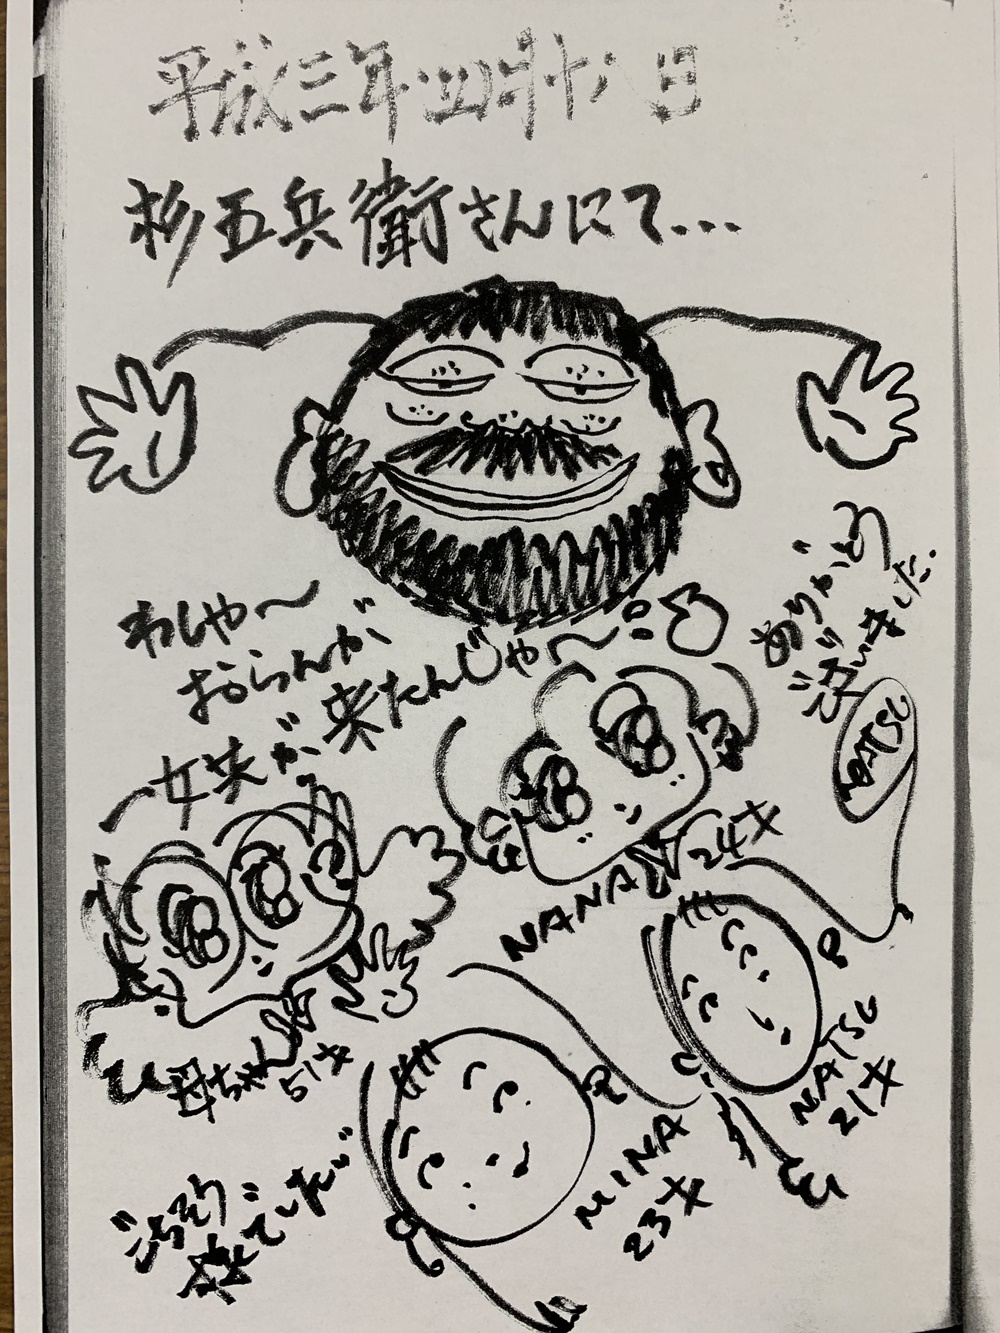 平成三年.四月十八日
杉五兵衛さんにて...
わしゃ〜
おらんが
女英が来たんじゃ〜!!
ありがとう
ございました.
NATSU
NANA 24才
母ちゃん 51才
NATSU
21才
NINA
23才
ごちそう
様でした